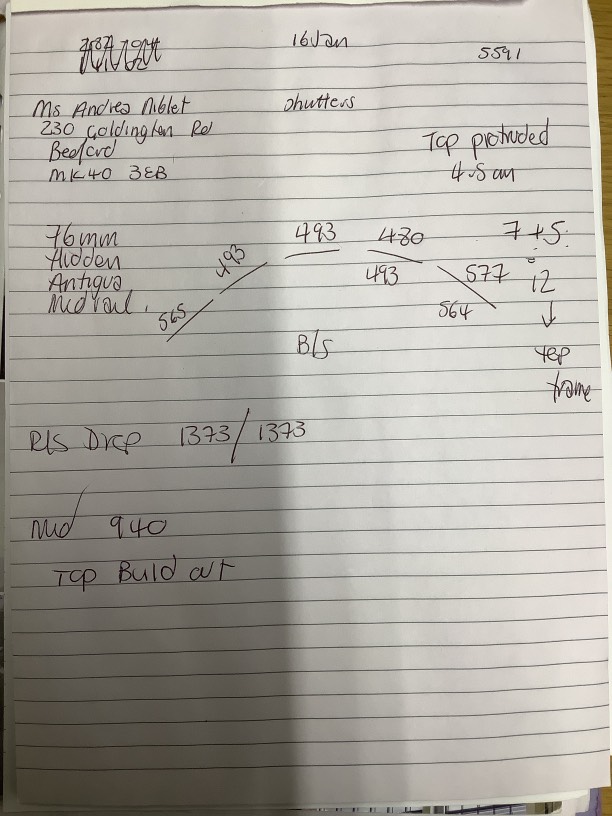 16 Jan
5591
Ms Andrea Niblet
Shutters
230 Goldington Rd
Bedford
MK40 3EB
Top protruded
4.5 cm
76mm
Hidden
Antigua
Mid rail.
565
493
493
480
493
577
564
7 + 5
12
↓
top
frame
B/S
R/S Drop 1373/1373
Mid 940
Top Build out